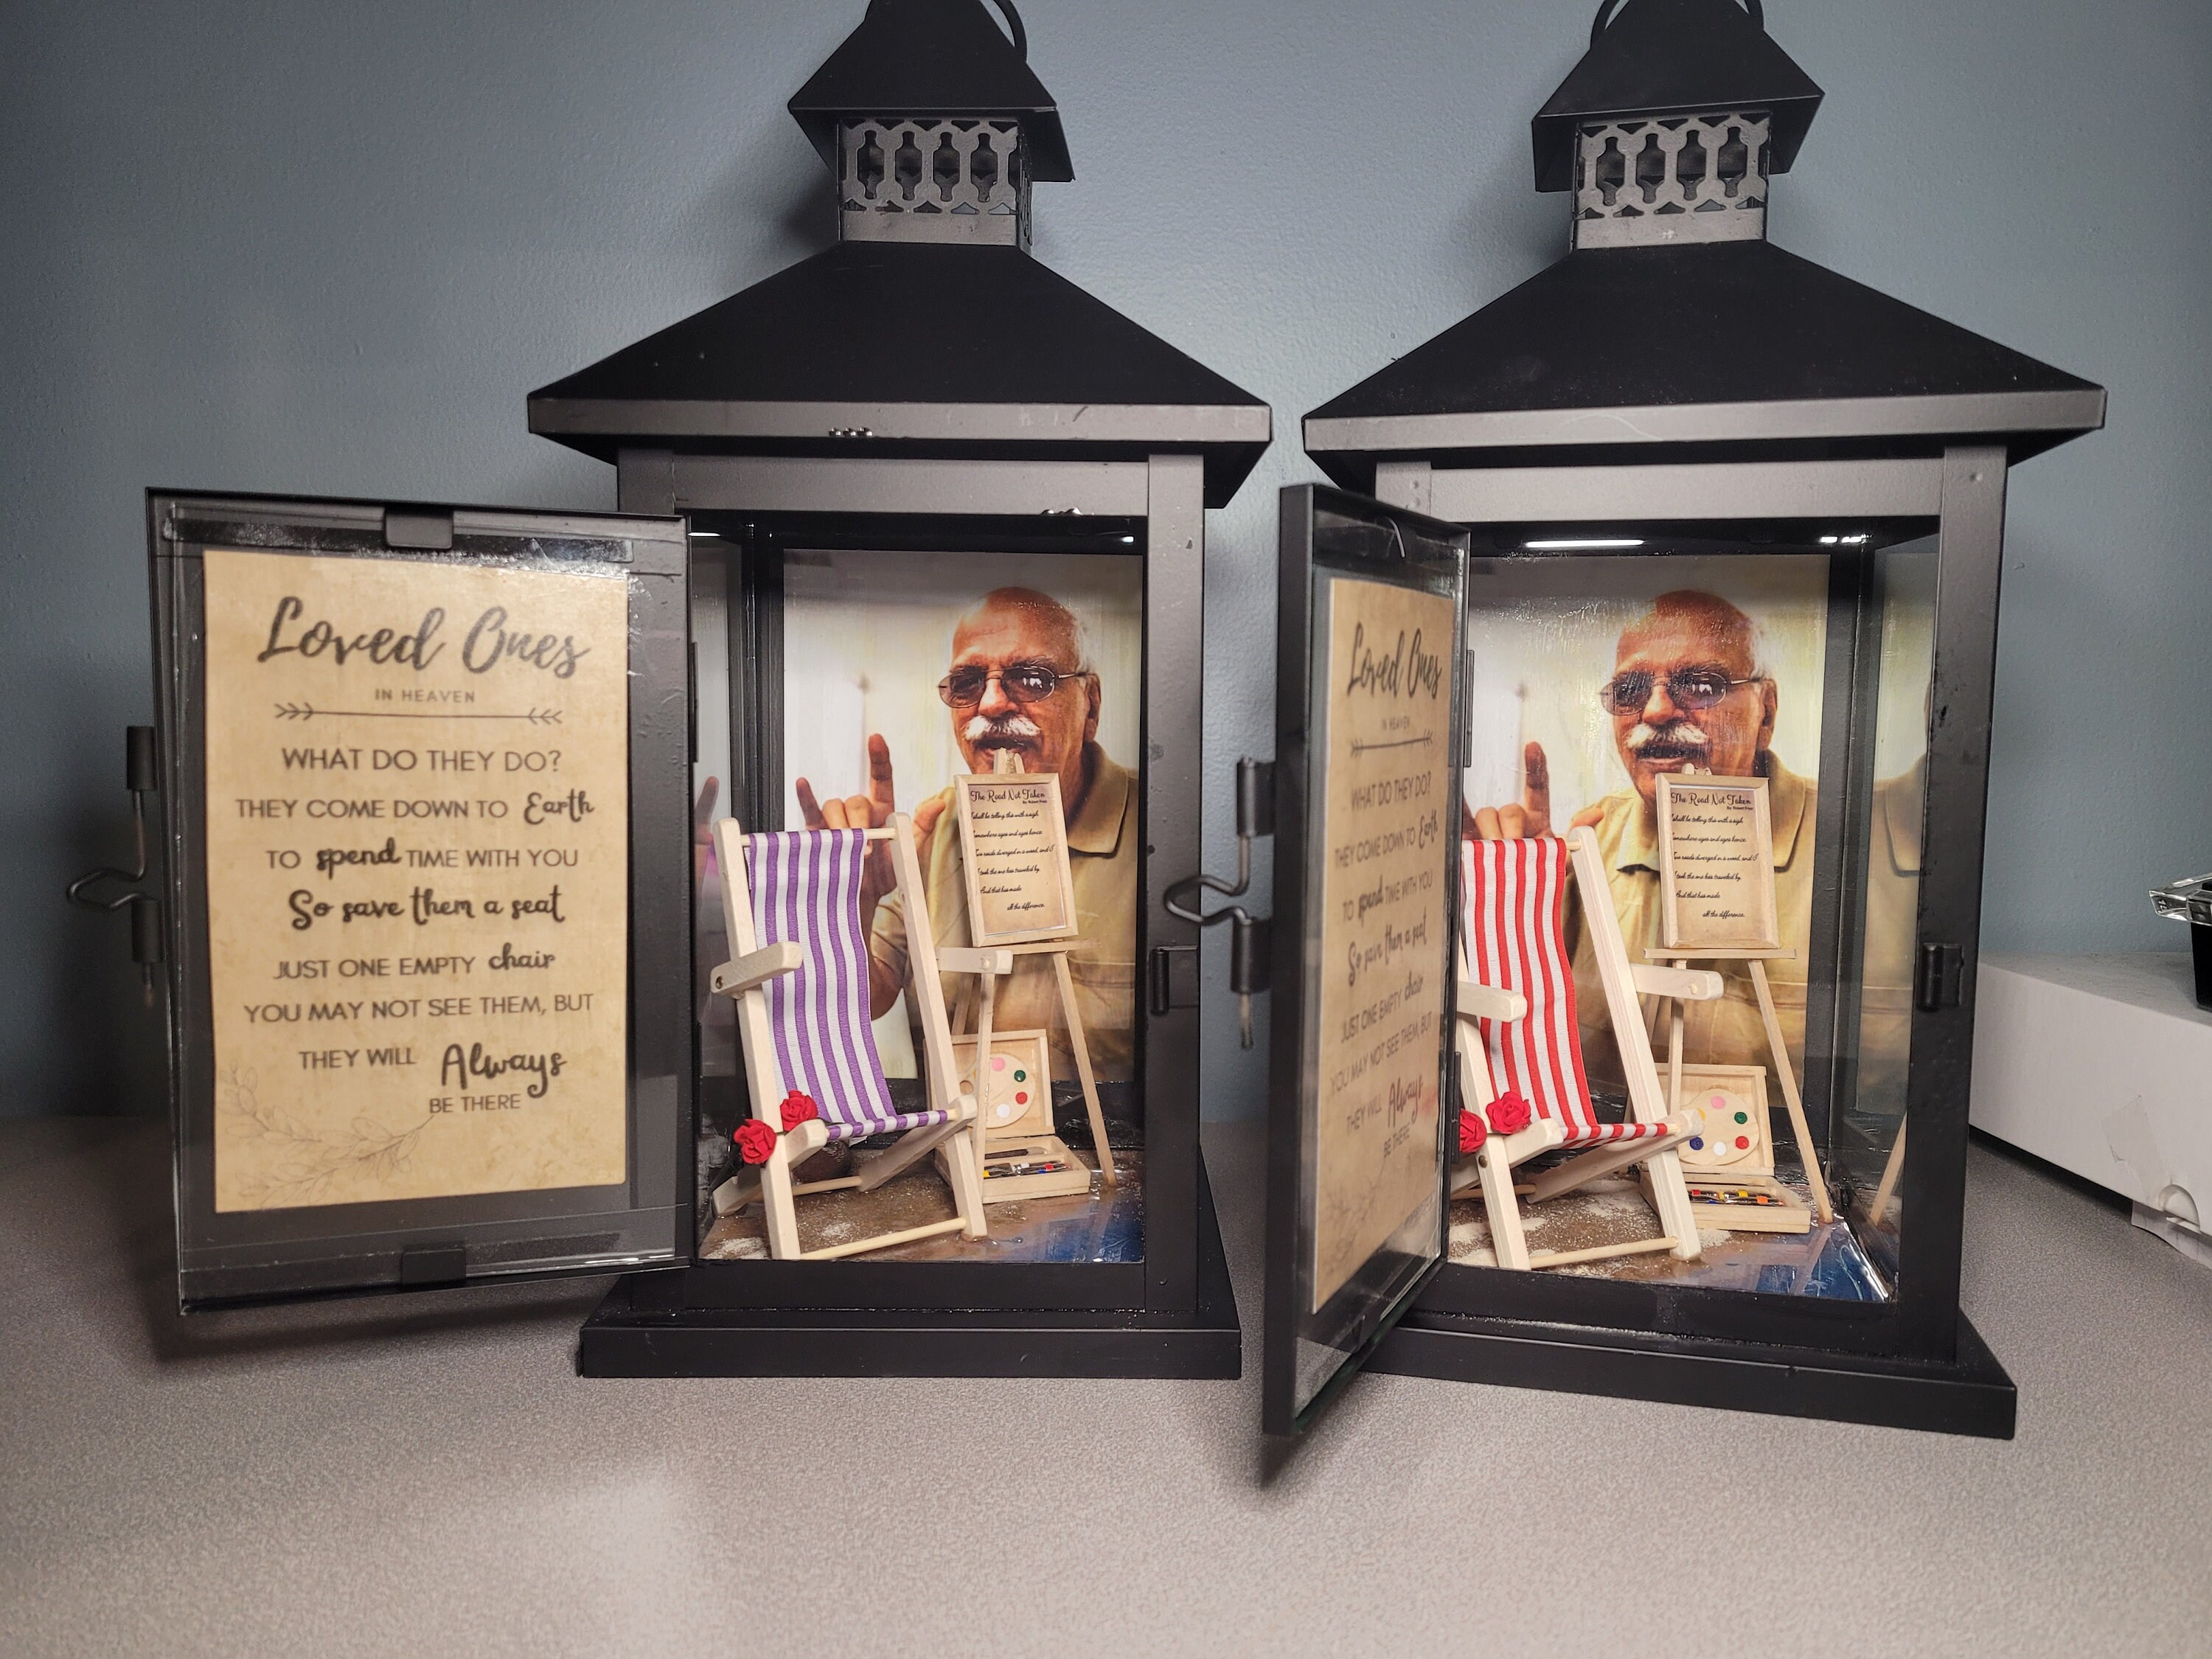 Loved Ones
IN HEAVEN
WHAT DO THEY DO?
THEY COME DOWN TO Earth
TO spend TIME WITH YOU
So save them a seat
JUST ONE EMPTY chair
YOU MAY NOT SEE THEM, BUT
THEY WILL Always
BE THERE
The Road Not Taken
By: Robert Frost
I shall be telling this with a sigh
Somewhere ages and ages hence:
Two roads diverged in a wood, and I
I took the one less traveled by,
And that has made
all the difference.
Loved Ones
IN HEAVEN
WHAT DO THEY DO?
THEY COME DOWN TO Earth
TO spend TIME WITH YOU
So save them a seat
JUST ONE EMPTY chair
YOU MAY NOT SEE THEM, BUT
THEY WILL Always
BE THERE
The Road Not Taken
By: Robert Frost
I shall be telling this with a sigh
Somewhere ages and ages hence:
Two roads diverged in a wood, and I
I took the one less traveled by,
And that has made
all the difference.